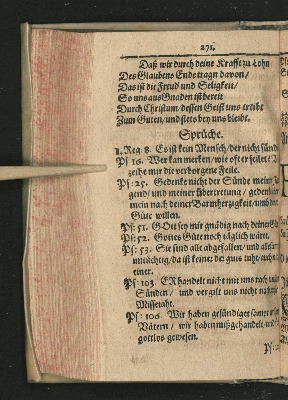 271.
Daß wir durch deine Krafft zu Lohn
Des Glaubens Ende tragn davon/
Das ist die Freud und Seligkeit/
So uns aus Gnaden ist bereit
Durch Christum/ dessen Geist uns treibt
Zum Guten/ und stets bey uns bleibt.
Sprüche.
1. Reg: 8. Es ist kein Mensch/ der nicht sünd
Ps 19. Wer kan mercken/ wie oft er feilet? V
zeihe mir die verborgene Feile.
Ps: 25. Gedencke nicht der Sünde meiner
gend/ und meiner Übertretung/ gedencke
mein nach deiner Barmhertzigkeit/ umb
Güte willen.
Ps: 51. GOtt sey mir gnädig nach deiner
Ps: 52. Gottes Güte noch täglich wäret.
Ps: 53. Sie sind alle abgefallen/ und
untüchtig/ da ist keiner der guts tuht/ auch
einer.
Ps: 103. ERhandelt nicht mit uns nach
Sünden/ und vergilt uns nicht nach
Missetaht.
Ps: 106. Wir haben gesündiget sampt
Vätern/ wir haben mißgehandelt/
gottlos gewesen.
Ps: